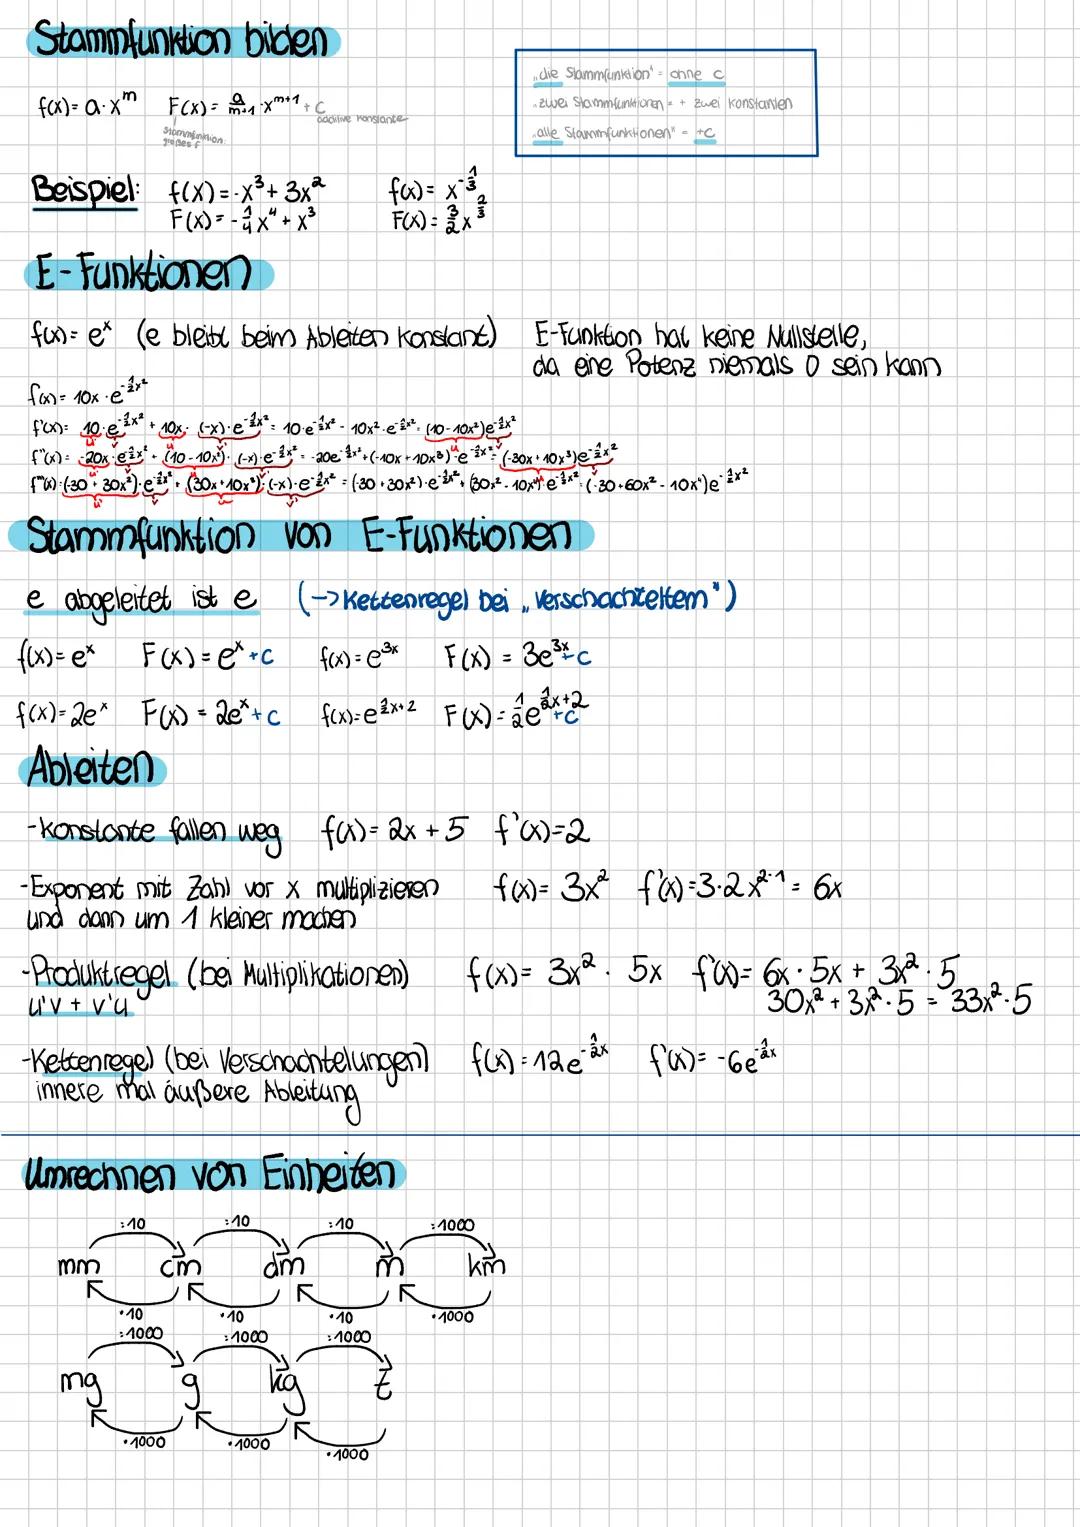 Stammfunktion bilden
„die Stammfunktion" = ohne c
„zwei Stammfunktionen = + zwei Konstanten
„alle Stammfunktionen" = +c
f(x) = a · x^m   F(x) = a/(m+1) · x^(m+1) + c
additive Konstante
Stammfunktion:
großes F
Beispiel: f(x) = -x³ + 3x²   f(x) = x^(-1/3)
F(x) = -1/4 x⁴ + x³   F(x) = 3/2 x^(2/3)
E-Funktionen
f(x) = e^x (e bleibt beim Ableiten Konstant)   E-Funktion hat keine Nullstelle,
da eine Potenz niemals 0 sein kann
f(x) = 10x · e^(-1/2x²)
f'(x) = 10 · e^(-1/2x²) + 10x · (-x) · e^(-1/2x²) = 10 · e^(-1/2x²) - 10x² · e^(-1/2x²) = (10 - 10x²)e^(-1/2x²)
f''(x) = -20x · e^(-1/2x²) + (10 - 10x²) · (-x) · e^(-1/2x²) = -20e^(-1/2x²) + (-10x + 10x³) · e^(-1/2x²) = (-30x + 10x³)e^(-1/2x²)
f'''(x) = (-30 + 30x²) · e^(-1/2x²) + (30x + 10x³) · (-x) · e^(-1/2x²) = (-30 + 30x²) · e^(-1/2x²) + (30x² - 10x⁴) · e^(-1/2x²) = (-30 + 60x² - 10x⁴)e^(-1/2x²)
Stammfunktion von E-Funktionen
e abgeleitet ist e (-> Kettenregel bei „Verschachteltem")
f(x) = e^x   F(x) = e^x + c   f(x) = e^(3x)   F(x) = 3e^(3x) + c
f(x) = 2e^x   F(x) = 2e^x + c   f(x) = e^(1/2x+2)   F(x) = 1/2 e^(1/2x+2) + c
Ableiten
- Konstante fallen weg   f(x) = 2x + 5   f'(x) = 2
- Exponent mit Zahl vor x multiplizieren   f(x) = 3x²   f'(x) = 3 · 2x^(2-1) = 6x
und dann um 1 kleiner machen
- Produktregel (bei Multiplikationen)   f(x) = 3x² · 5x   f'(x) = 6x · 5x + 3x² · 5
u'v + v'u   30x² + 3x² · 5 = 33x² · 5
- Kettenregel (bei Verschachtelungen)   f(x) = 12e^(-1/2x)   f'(x) = -6e^(-1/2x)
innere mal äußere Ableitung
Umrechnen von Einheiten
:10   :10   :10   :1000
mm   cm   dm   m   km
·10   ·10   ·10   ·1000
:1000   :1000   :1000
mg   g   kg   t
·1000   ·1000   ·1000